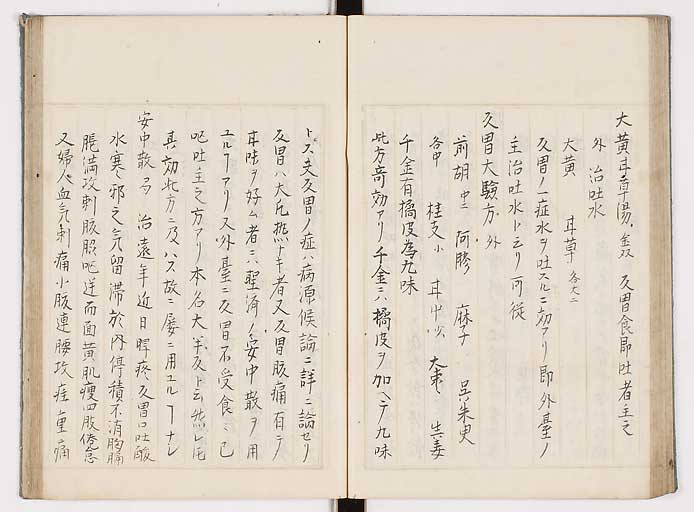 大黄甘草湯 金 反胃食即吐者主之
外 治吐水
大黄 甘草 各大二
反胃ノ一症水ヲ吐スルニ効アリ即外臺ノ
主治吐水ト云リ可従
反胃大驗方 外
前胡 中 阿膠 麻子 呉朱臾
各中 桂支 小 甘中 大棗 生姜
千金有橘皮為九味
此方奇効アリ千金ニハ橘皮ヲ加ヘテ九味
トス夫反胃ノ症ハ病源候論ニ詳ニ論セリ
反胃ハ大氐熱ナキ者又反胃腹痛有テ
甘味ヲ好ム者ニハ聖済ノ安中散ヲ用
ユルヿアリ又外臺ニ反胃不受食ニ已
呕吐主之方アリ本名大半反ト云然レ𪜈
其効此方ニ及ハス故ニ屡ニ用ユルヿナシ
安中散 局 治遠年近日脾疼反胃口吐酸
水寒邪之氣留滯於内停積不消胸膈
脹満攻刺腹脇呕逆而面黄肌瘦四肢倦怠
又婦人血氣刺痛小腹連腰攻疰重痛